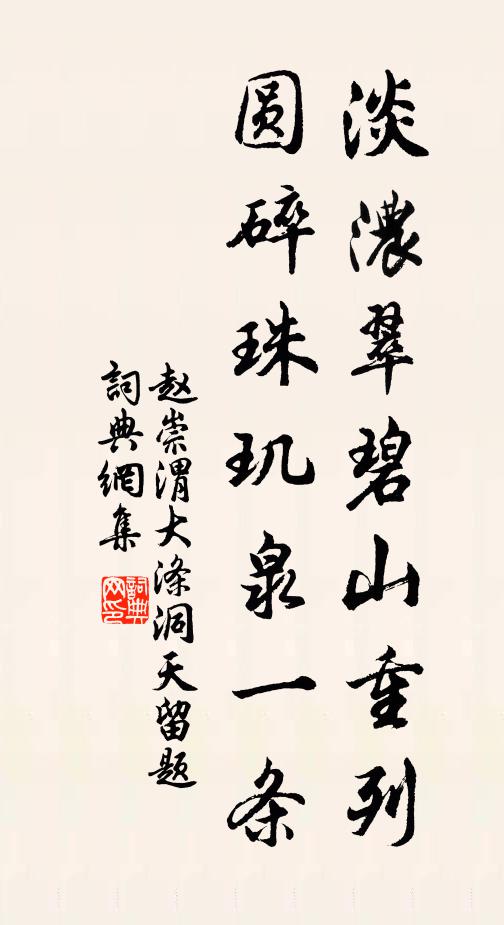 淡濃翠碧山重列
圆碎珠玑泉一条
赵崇渭大涤洞天留题
詞典網集
詞典网印